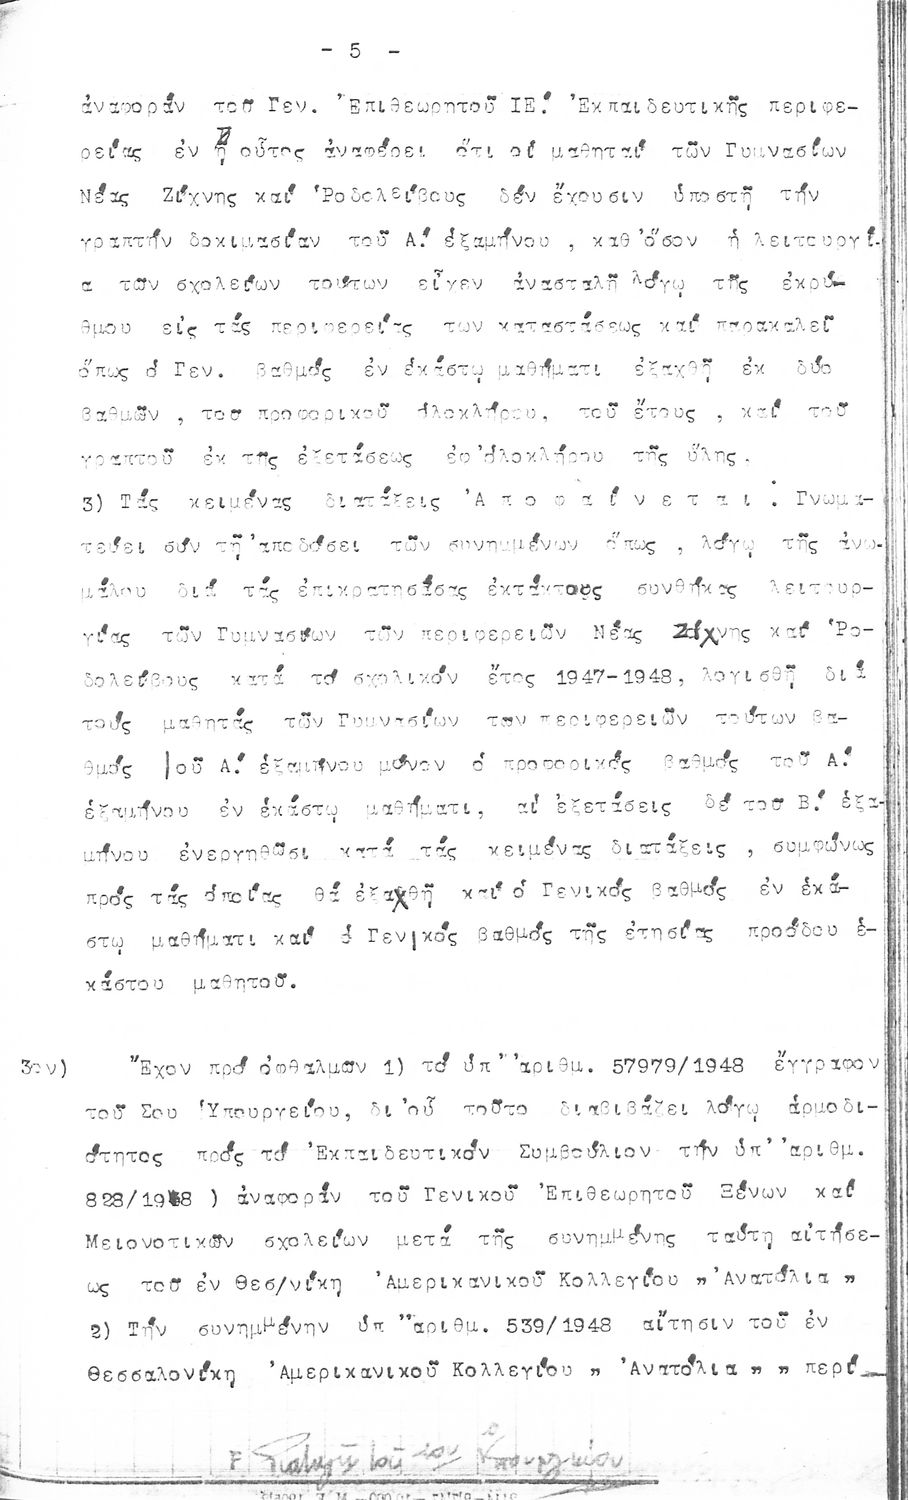 - 5 -
ἀναφοράν τοῦ Γεν. Ἐπιθεωρητοῦ ΙΕ! Ἐκπαιδευτικῆς περιφε-
ρείας ἐν ᾗ οὗτος ἀναφέρει ὅτι οἱ μαθηταί τῶν Γυμνασίων
Νέας Ζίχνης καί Ῥοδολείβους δέν ἔχουσιν ὑποστῆ τήν
γραπτήν δοκιμασίαν τοῦ Α! ἑξαμήνου , καθ'ὅσον ἡ λειτουργί-
α τῶν σχολείων τούτων εἶχεν ἀνασταλῆ λόγῳ τῆς ἐκρύ-
θμου εἰς τάς περιφερείας των καταστάσεως καί παρακαλεῖ
ὅπως ὁ Γεν. βαθμός ἐν ἑκάστῳ μαθήματι ἐξαχθῆ ἐκ δύο
βαθμῶν , τοῦ προφορικοῦ ὁλοκλήρου, τοῦ ἔτους , καί τοῦ
γραπτοῦ ἐκ τῆς ἐξετάσεως ἐφ'ὁλοκλήρου τῆς ὕλης.
3) Τάς κειμένας διατάξεις 'Α π ο φ α ί ν ε τ α ι : Γνωμα-
τεύει σύν τῇ 'αποδόσει τῶν συνημμένων ὅπως , λόγῳ τῆς ἀνω-
μάλου διά τάς ἐπικρατησάσας ἐκτάκτους συνθήκας λειτουρ-
γίας τῶν Γυμνασίων τῶν περιφερειῶν Νέας Ζίχνης καί Ῥο-
δολείβους κατά τό σχολικόν ἔτος 1947-1948, λογισθῆ διά
τούς μαθητάς τῶν Γυμνασίων τῶν περιφερειῶν τούτων βα-
θμός |οῦ Α! ἑξαμήνου μόνον ὁ προφορικός βαθμός τοῦ Α!
ἑξαμήνου ἐν ἑκάστῳ μαθήματι, αἱ ἐξετάσεις δέ τοῦ Β! ἑξα-
μήνου ἐνεργηθῶσι κατά τάς κειμένας διατάξεις , συμφώνως
πρός τάς ὁποίας θά ἐξαχθῆ καί ὁ Γενικός βαθμός ἐν ἑκά-
στῳ μαθήματι καί ὁ Γενικός βαθμός τῆς ἐτησίας προόδου ἑ-
κάστου μαθητοῦ.
3ον) Ἔχον πρό ὀφθαλμῶν 1) τό ὑπ''αριθμ. 57979/1948 ἔγγραφον
τοῦ Σου Ὑπουργείου, δι'οὗ τοῦτο διαβιβάζει λόγῳ ἁρμοδι-
ότητος πρός τό Ἐκπαιδευτικόν Συμβούλιον τήν ὑπ''αριθμ.
828/1948 ) ἀναφοράν τοῦ Γενικοῦ Ἐπιθεωρητοῦ Ξένων καί
Μειονοτικῶν σχολείων μετά τῆς συνημμένης ταύτῃ αἰτήσε-
ως τοῦ ἐν Θεσ/νίκῃ Ἀμερικανικοῦ Κολλεγίου " Ἀνατόλια "
2) Τήν συνημμένην ὑπ''αριθμ. 539/1948 αἴτησιν τοῦ ἐν
Θεσσαλονίκῃ Ἀμερικανικοῦ Κολλεγίου " Ἀνατόλια " " περί